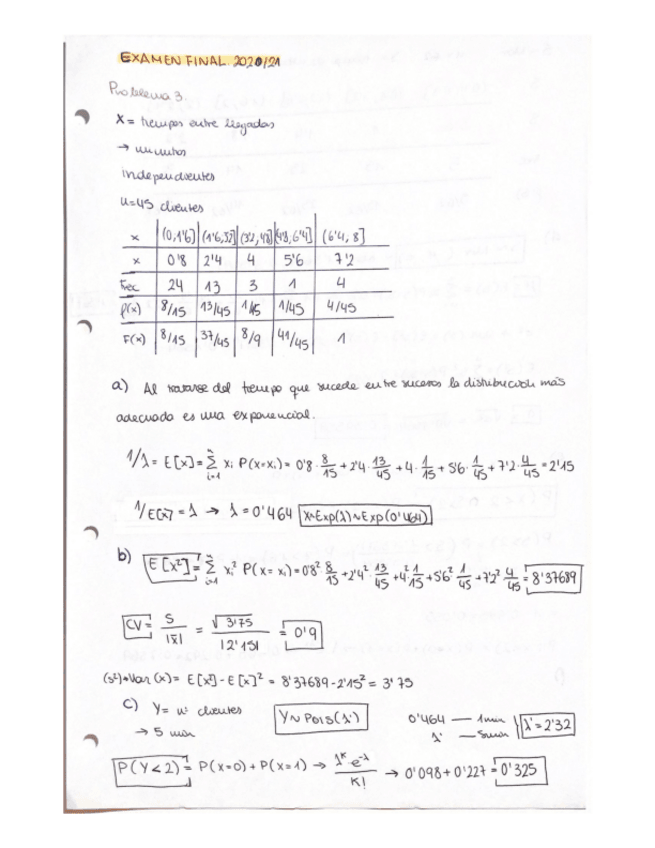 EXAMEN FINAL. 2020/21
Problema 3.
X = tiempos entre llegadas
→ minutos
independientes
n=45 clientes
x | (0,1'6] | (1'6,3'2] | (3'2,4'8] | (4'8,6'4] | (6'4,8]
x | 0'8 | 2'4 | 4 | 5'6 | 7'2
Frec | 24 | 13 | 3 | 1 | 4
P(x) | 8/15 | 13/45 | 1/15 | 1/45 | 4/45
F(x) | 8/15 | 37/45 | 8/9 | 41/45 | 1
a) Al tratarse del tiempo que sucede entre sucesos la distribución más
adecuada es una exponencial.
1/λ = E[x] = Σ xi P(x=xi) = 0'8 · 8/15 + 2'4 · 13/45 + 4 · 1/15 + 5'6 · 1/45 + 7'2 · 4/45 = 2'15
1/E[x] = λ → λ = 0'464 X~Exp(λ)~Exp(0'464)
b) E[x²] = Σ xi² P(x=xi) = 0'8² 8/15 + 2'4² 13/45 + 4² 1/15 + 5'6² 1/45 + 7'2² 4/45 = 8'37689
CV = S/|x̄| = √3'75/|2'151| = 0'9
(s²) Var(x) = E[x²] - E[x]² = 8'37689 - 2'15² = 3'75
c) Y = nº clientes Y~Pois(λ') 0'464 — 1min λ' = 2'32
→ 5 min λ' — 5min
P(Y<2) = P(x=0) + P(x=1) → λᵏ e^-λ / K! → 0'098 + 0'227 = 0'325